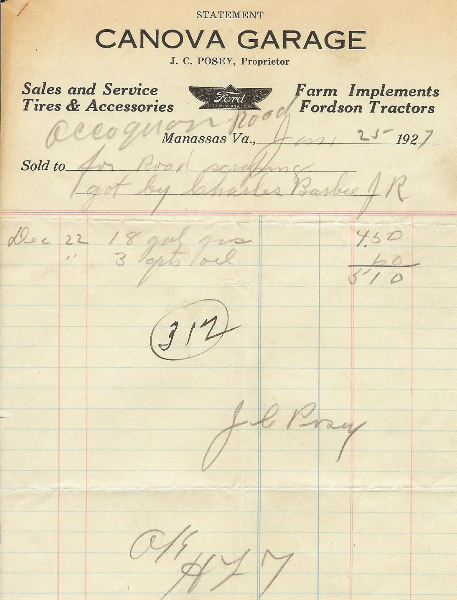 STATEMENT
CANOVA GARAGE
J. C. POSEY, Proprietor
Sales and Service
Tires & Accessories
Ford
Farm Implements
Fordson Tractors
Occoquan Road
Manassas Va., Jan 25 1927
Sold to for Road
got by Charles Barbee JR
Dec 22 18 gal gas 4.50
" 3 qts oil 60
510
312
J C Posey
O/K